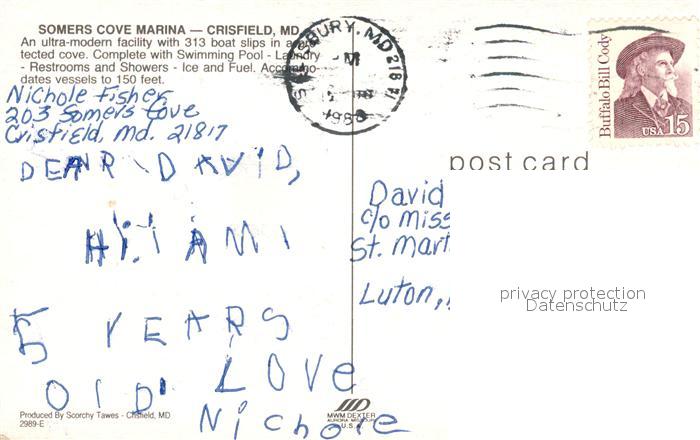 SOMERS COVE MARINA — CRISFIELD, MD
An ultra-modern facility with 313 boat slips in a
tected cove. Complete with Swimming Pool - Laundry
- Restrooms and Showers - Ice and Fuel. Accommo-
dates vessels to 150 feet.
Nichole Fisher
203 Somers Cove
Crisfield, Md. 21817
DEAR DAVID,
HI I AM
5 YEARS
OLD LOVE
Nichole
Produced By Scorchy Tawes - Crisfield, MD
2989-E
MWM DEXTER
AURORA, MISSOURI
U.S.A.
MD 218
PM
1988
Buffalo Bill Cody
USA 15
post card
David
c/o Miss
St. Mart
Luton,
privacy protection
Datenschutz